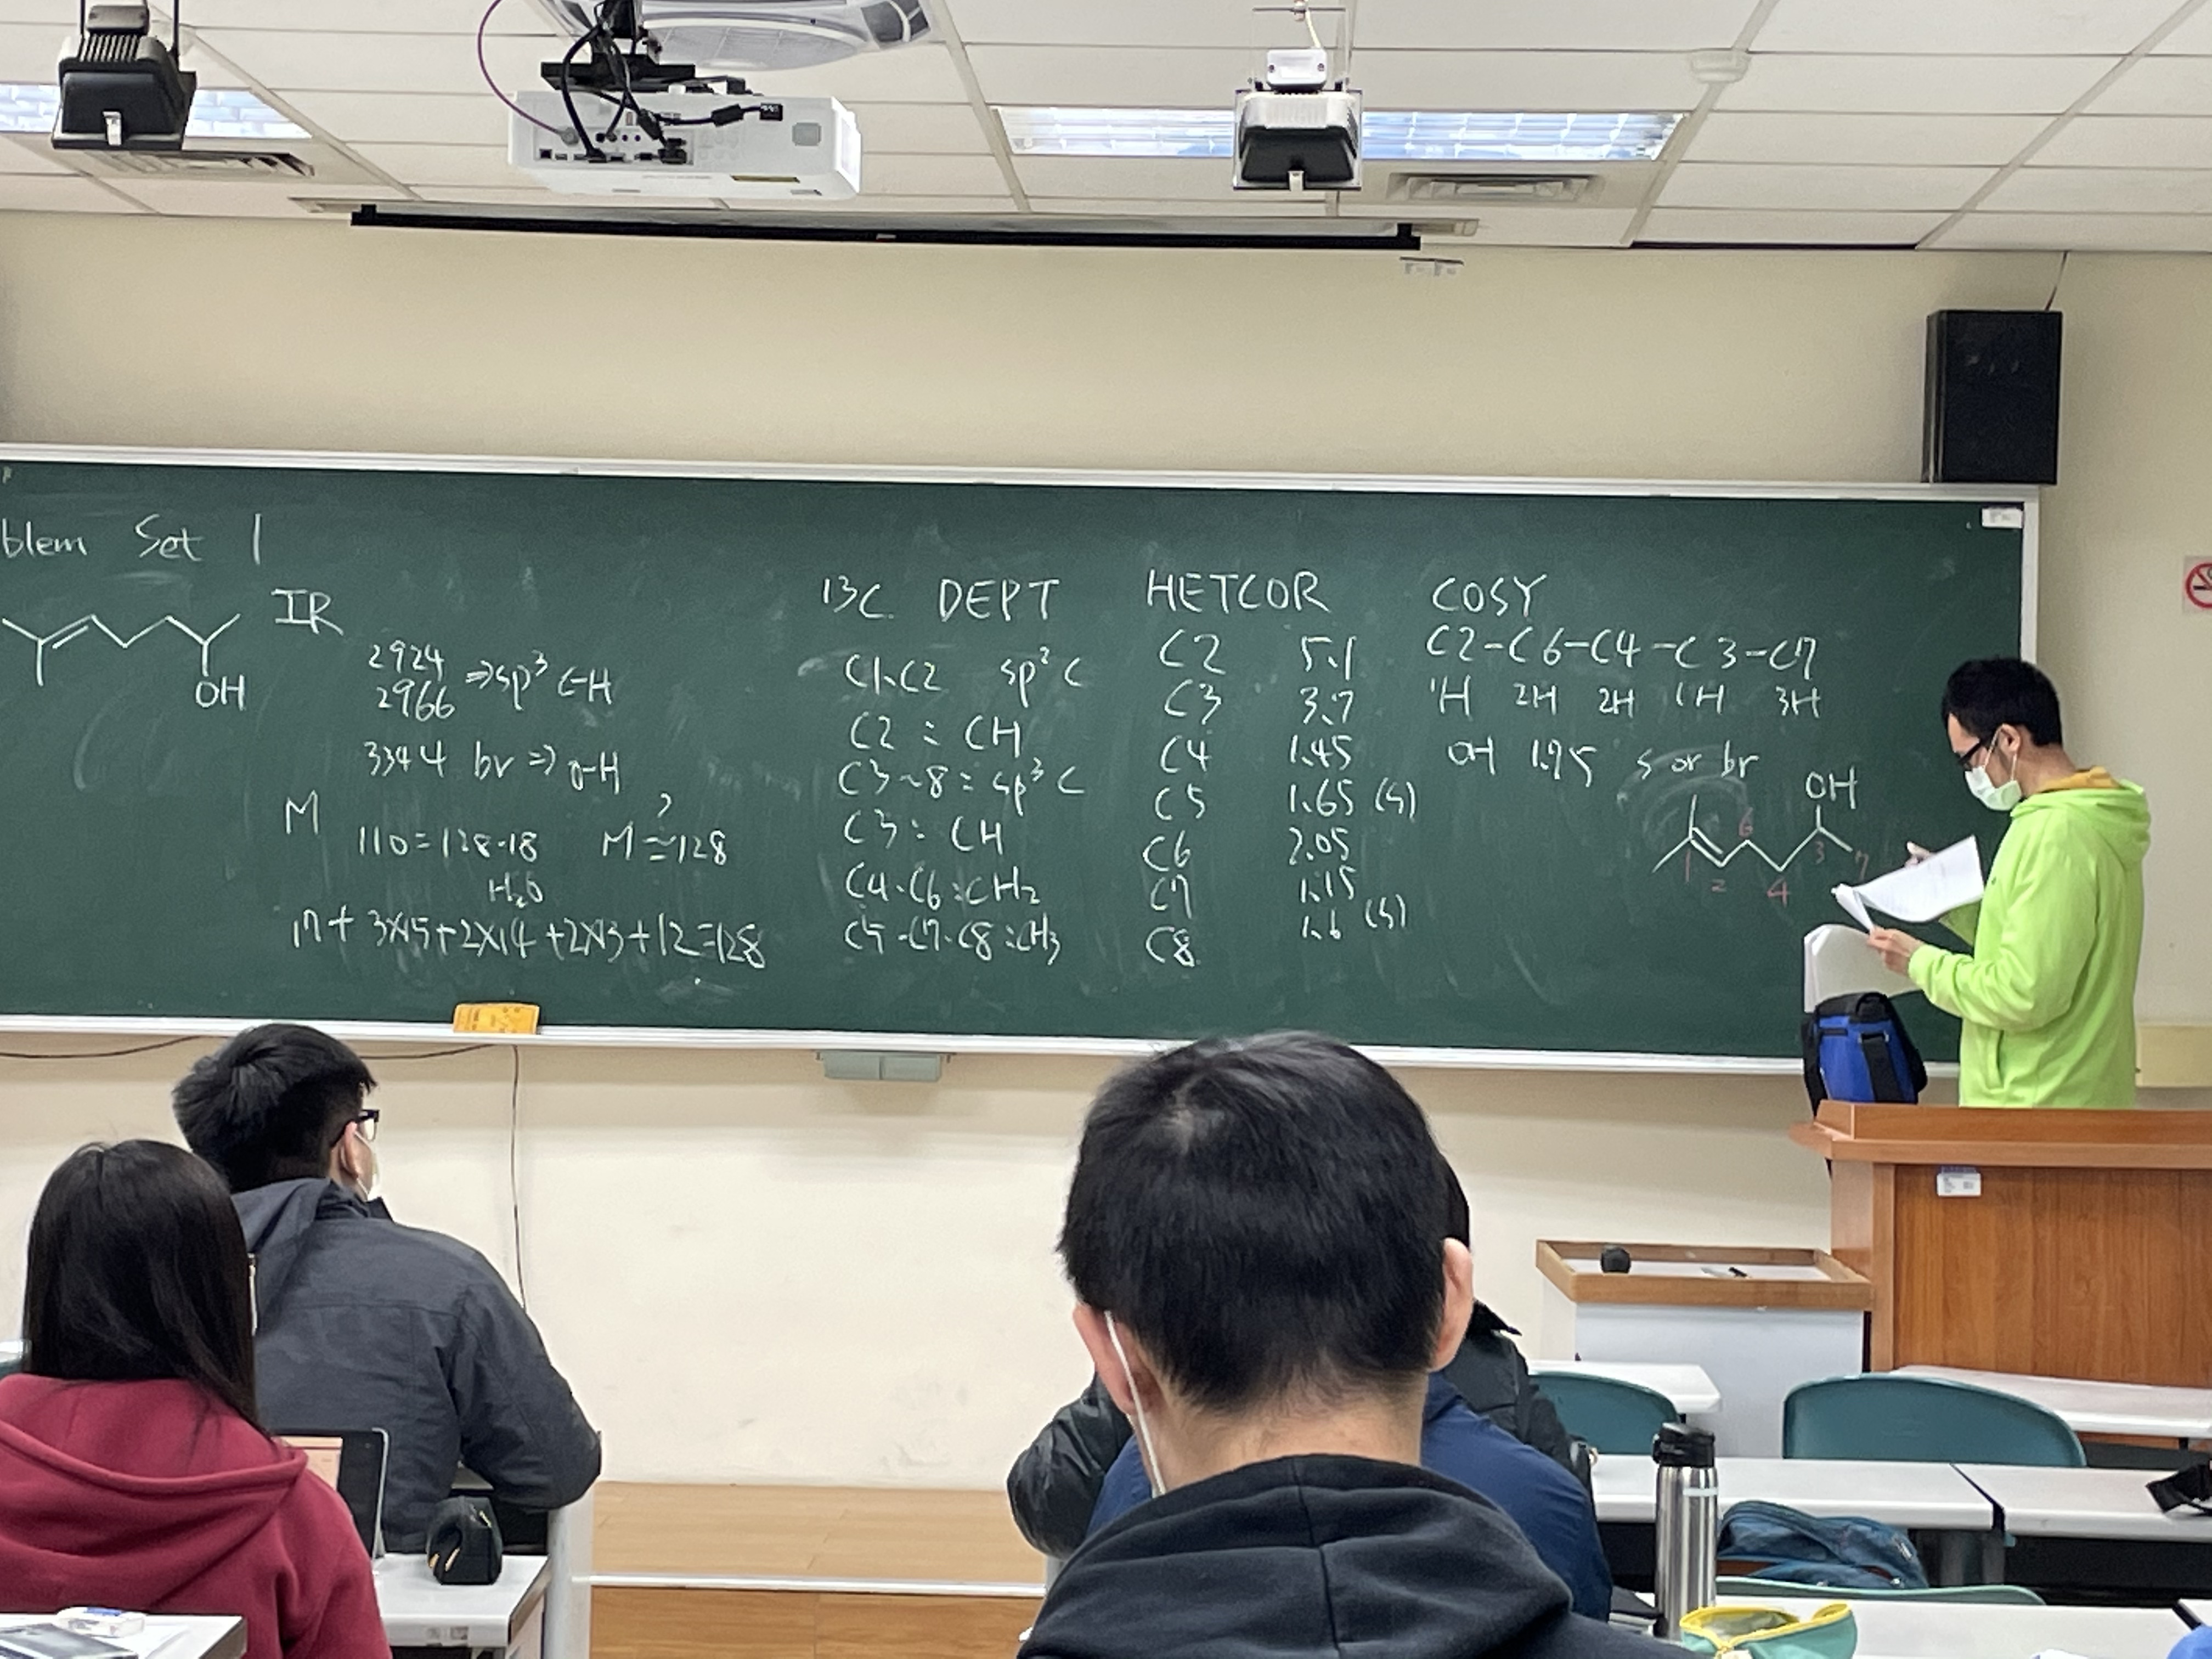 blem Set 1
OH
IR
2924
2966 ⇒ sp³ C-H
3344 br ⇒ O-H
M
110=128-18 M ≃ 128
?
H₂O
17+ 3×15+2×14+2×13+12=128
13C DEPT
C1、C2 sp² C
C2 : CH
C3~8 : sp³ C
C3 : CH
C4、C6 : CH₂
C5、C7、C8 : CH₃
HETCOR
C2 5.1
C3 3.7
C4 1.45
C5 1.65 (s)
C6 2.05
C7 1.15
C8 1.6 (s)
COSY
C2-C6-C4-C3-C7
1H 2H 2H 1H 3H
OH 1.95 s or br
OH
1
2
6
4
3
7